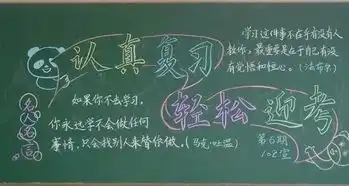 认真复习
轻松迎考
学习这件事不在乎有没有人
教你，最重要是在于自己有没
有觉悟和恒心。（法布尔）
名人名言
如果你不去学习，
你永远学不会做任何
事情，只会找别人来替你做。（马克·吐温）
第六期
102室